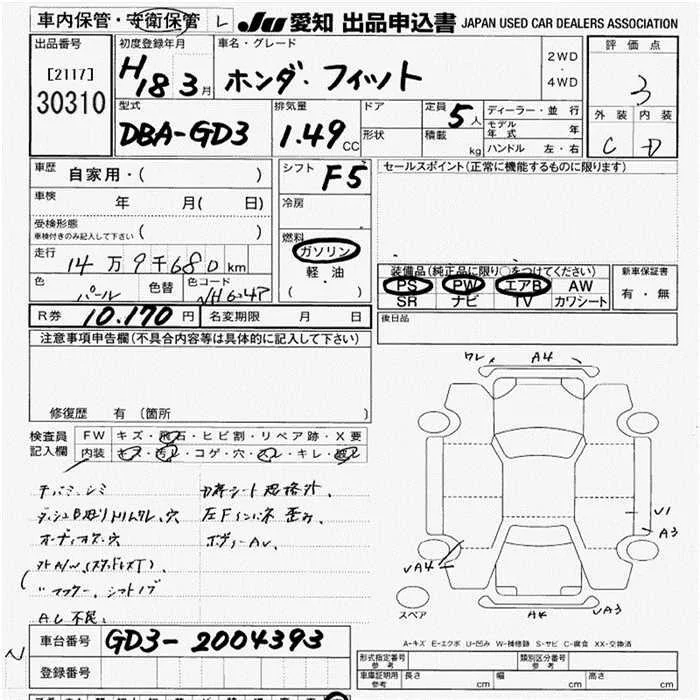 車内保管・安衛保管 L JU 愛知 出品申込書 JAPAN USED CAR DEALERS ASSOCIATION
出品番号
[2117]
30310
初度登録年月
H18 3月
車名・グレード
ホンダ・フィット
2WD
・
4WD
評価点
3
外装 内装
C D
型式
DBA-GD3
排気量
1.49 CC
ドア
形状
定員 5人
積載 kg
ディーラー・並行
モデル年式 年
ハンドル 左・右
車歴 自家用・( )
車検 年 月( 日)
受検形態
車検付きのみ記入して下さい ( )
走行 14万9千680km
色 パール 色替 色コード NH624P
シフト F5
冷房
燃料
ガソリン
軽油
( ・ )
セールスポイント(正常に機能するものに限ります)
装備品(純正品に限り○をつけてください)
PS PW エアB AW
SR ナビ TV カワシート
新車保証書
有・無
R券 10.170円 名変期限 月 日
後日品
注意事項申告欄(不具合内容等は具体的に記入して下さい)
修復歴 有(箇所 )
検査員
記入欄
FW キズ・飛石・ヒビ割・リペア跡・X要
内装 キズ・汚レ・コゲ・穴・スレ・キレ・
ダッシュB
穴
オーディオ
左Fインパネ 歪み、
ボディーAU、
A/W
シフトノブ
AC不良、
ワレ A4
U1
A3
UA4
A4 UA3
スペア
A-キズ E-エクボ U-凹み W-補修跡 S-サビ C-腐食 XX-交換済
車台番号 GD3-2004393
登録番号
型式指定番号
参考
類別区分番号
参考
車庫証明用
参考
長さ cm 幅 cm 高さ cm